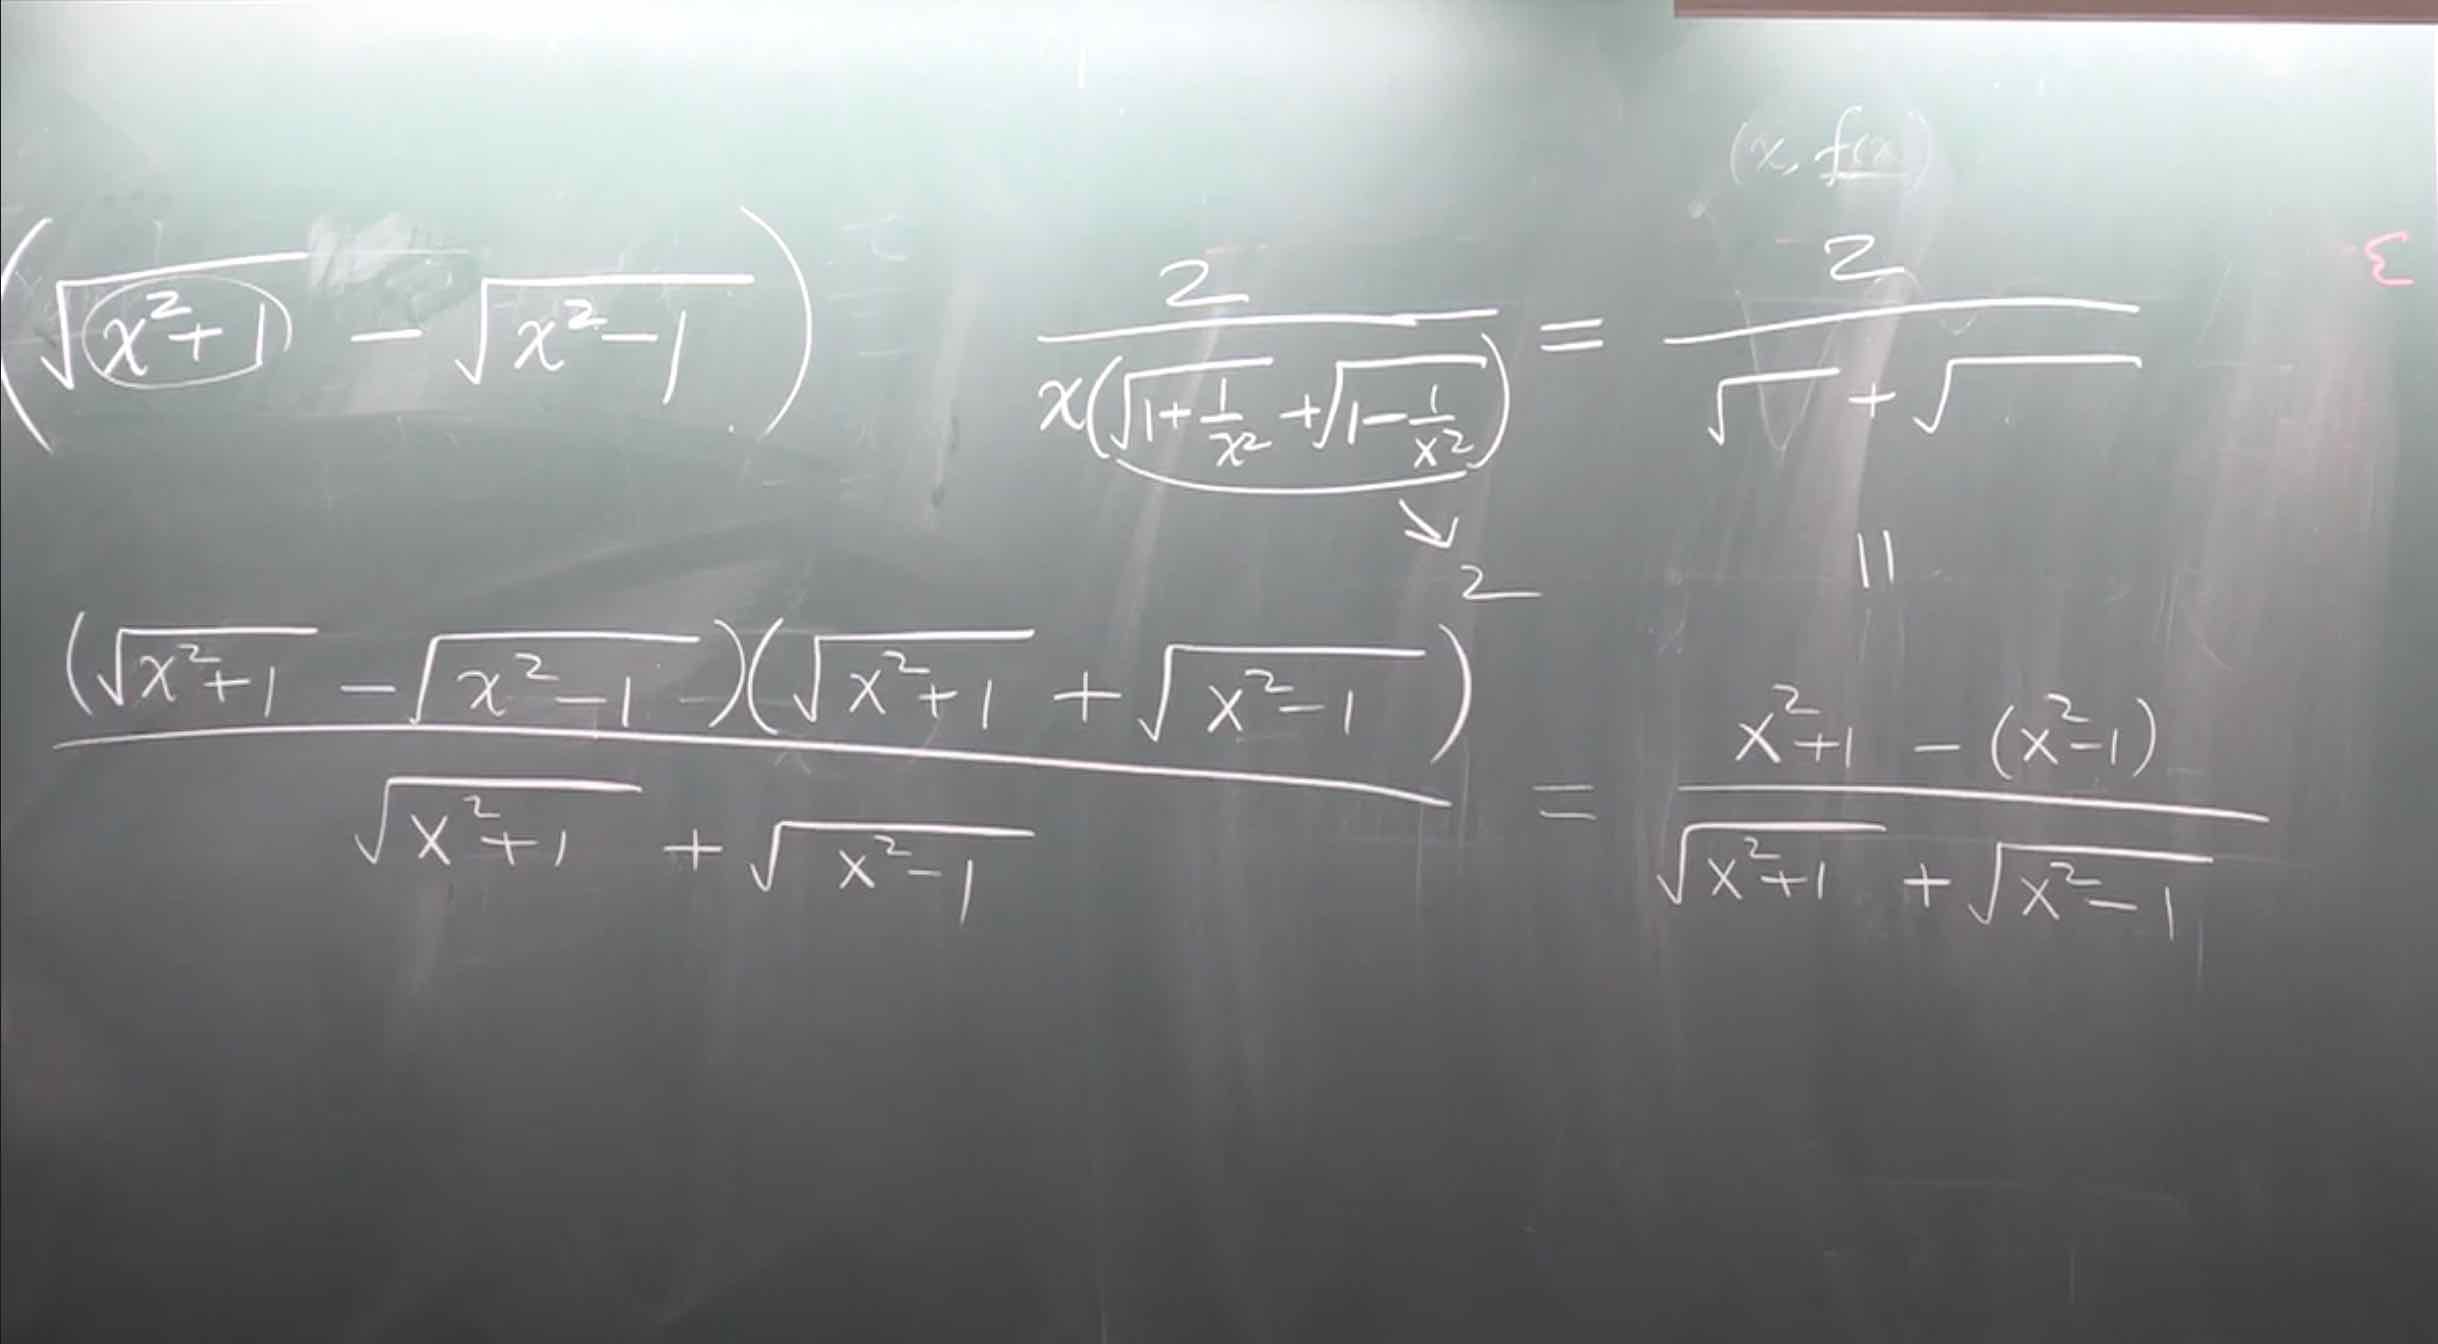 (x, f(x))
(√(x²+1) − √(x²−1)) 2/(x(√(1+1/x²) + √(1−1/x²))) = 2/(√ + √) ε
↘ 2 ||
(√(x²+1) − √(x²−1))(√(x²+1) + √(x²−1))/(√(x²+1) + √(x²−1)) = (x²+1 − (x²−1))/(√(x²+1) + √(x²−1))